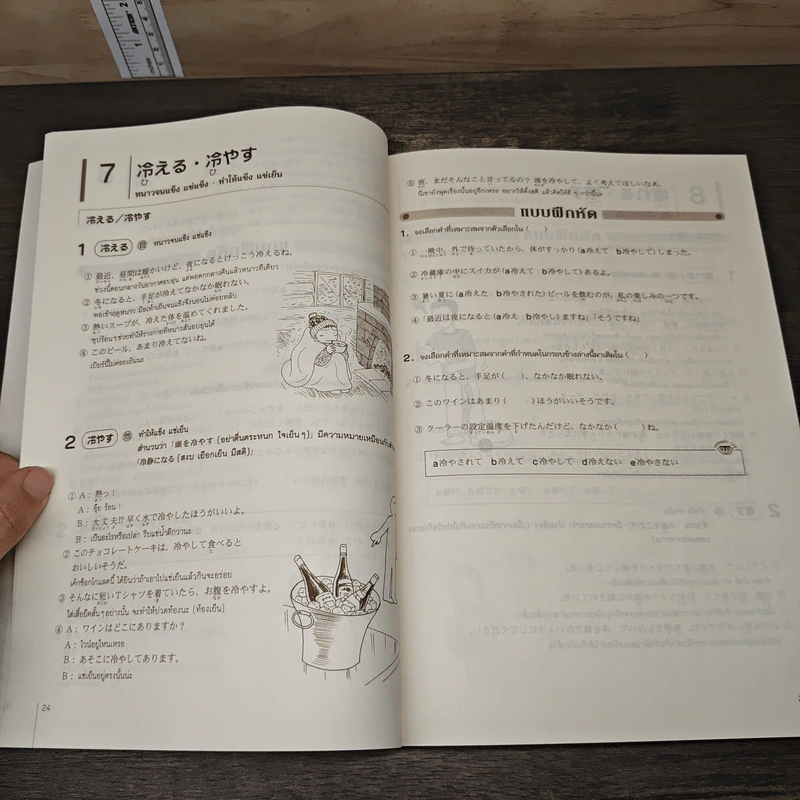 7 冷える・冷やす
หนาวจนแข็ง แช่แข็ง · ทำให้แข็ง แช่เย็น
冷える/冷やす
1 冷える 自 หนาวจนแข็ง แช่แข็ง
① 最近、昼間は暖かいけど、夜になるとけっこう冷えるね。
ช่วงนี้ตอนกลางวันอากาศอบอุ่น แต่พอตกกลางคืนแล้วหนาวทีเดียว
② 冬になると、手足が冷えてなかなか眠れない。
พอเข้าฤดูหนาว มือเท้าเย็นแข็งจึงนอนไม่ค่อยหลับ
③ 熱いスープが、冷えた体を温めてくれました。
ซุปร้อนๆช่วยทำให้ร่างกายที่หนาวสั่นอบอุ่นได้
④ このビール、あまり冷えてないね。
เบียร์นี้ไม่ค่อยเย็นนะ
2 冷やす 他 ทำให้แข็ง แช่เย็น
สำนวนว่า 「頭を冷やす (อย่าตื่นตระหนก ใจเย็นๆ)」 มีความหมายเหมือนกับคำ
「冷静になる (สงบ เยือกเย็น มีสติ)」
① A : 熱っ!
A : อุ้ย ร้อน!
B : 大丈夫!? 早く水で冷やしたほうがいいよ。
B : เป็นอะไรหรือเปล่า รีบแช่น้ำดีกว่านะ
② このチョコレートケーキは、冷やして食べると
おいしいそうだ。
เค้กช็อกโกแลตนี้ ได้ยินว่าถ้าเอาไปแช่เย็นแล้วกินจะอร่อย
③ そんなに短いTシャツを着ていたら、お腹を冷やすよ。
ใส่เสื้อยืดสั้นๆอย่างนั้น จะทำให้ปวดท้องนะ (ท้องเย็น)
④ A : ワインはどこにありますか?
A : ไวน์อยู่ไหนเหรอ
B : あそこに冷やしてあります。
B : แช่เย็นอยู่ตรงนั้นน่ะ
24
⑤ 前、まだそんなこと言ってるの? 頭を冷やして、よく考えてほしいなあ。
แบบฝึกหัด
1. จงเลือกคำที่เหมาะสมจากตัวเลือกใน ( )
① 一晩中、外で待っていたから、体がすっかり(a冷えて b冷やして)しまった。
② 冷蔵庫の中にスイカが(a冷えて b冷やして)あるよ。
③ 暑い夏に(a冷えた b冷やされた)ビールを飲むのが、私の楽しみの一つです。
④ 「最近は夜になると(a冷え b冷やし)ますね」「そうですね」
2. จงเลือกคำที่เหมาะสมจากคำที่กำหนดในกรอบข้างล่างนี้มาเติมใน ( )
① 冬になると、手足が( )、なかなか眠れない。
② このワインはあまり( )ほうがいいそうです。
③ クーラーの設定温度を下げたんだけど、なかなか( )ね。
a冷やされて b冷えて c冷やして d冷えない e冷やさない